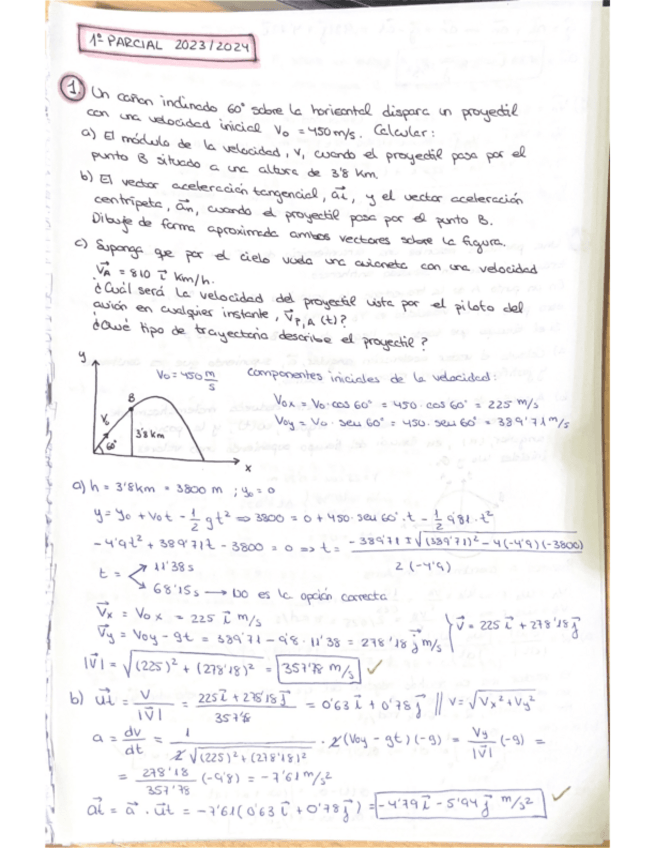 1º PARCIAL 2023/2024
1. Un cañon inclinado 60° sobre la horizontal dispara un proyectil
con una velocidad inicial V₀ = 450 m/s. Calcular:
a) El módulo de la velocidad, v, cuando el proyectil pasa por el
punto B situado a una altura de 3'8 km.
b) El vector aceleración tangencial, a⃗t, y el vector aceleración
centrípeta, a⃗n, cuando el proyectil pasa por el punto B.
Dibuje de forma aproximada ambos vectores sobre la figura.
c) Suponga que por el cielo vuela una avioneta con una velocidad
V⃗A = 810 i⃗ km/h.
¿Cuál será la velocidad del proyectil vista por el piloto del
avión en cualquier instante, V⃗P,A (t)?
¿Qué tipo de trayectoria describe el proyectil?
y
V₀ = 450 m/s
Componentes iniciales de la velocidad:
B
V₀x = V₀·cos 60° = 450·cos 60° = 225 m/s
V₀
V₀y = V₀·sen 60° = 450·sen 60° = 389'71 m/s
3'8 km
60°
x
a) h = 3'8 km = 3800 m ; y₀ = 0
y = y₀ + V₀t - 1/2 gt² ⇒ 3800 = 0 + 450·sen 60°·t - 1/2 9'81·t²
-4'9t² + 389'71t - 3800 = 0 ⇒ t = (-389'71 ± √((389'71)² - 4(-4'9)(-3800))) / 2(-4'9)
t = 11'38 s
68'15 s → No es la opción correcta
V⃗x = V₀x = 225 i⃗ m/s
V⃗y = V₀y - gt = 389'71 - 9'8·11'38 = 278'18 j⃗ m/s } V⃗ = 225 i⃗ + 278'18 j⃗
|V⃗| = √((225)² + (278'18)²) = 357'78 m/s ✓
b) u⃗t = V/|V⃗| = (225 i⃗ + 278'18 j⃗)/357'8 = 0'63 i⃗ + 0'78 j⃗ // V = √(Vx² + Vy²)
a = dv/dt = 1/(2√((225)² + (278'18)²)) · 2(V₀y - gt)(-g) = Vy/|V⃗| (-g) =
= 278'18/357'78 (-9'8) = -7'61 m/s²
a⃗t = a⃗ · u⃗t = -7'61(0'63 i⃗ + 0'78 j⃗) = -4'79 i⃗ - 5'94 j⃗ m/s² ✓